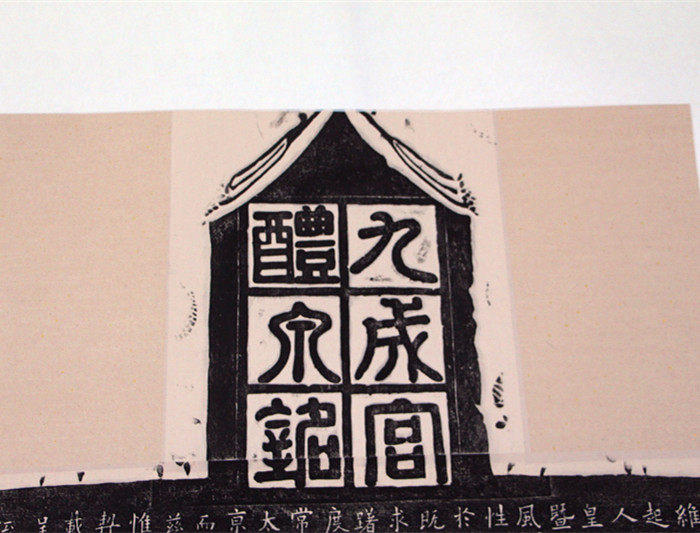 九成宮
醴泉銘
維起人皇暨風性於既求躇度常太京而茲惟契載